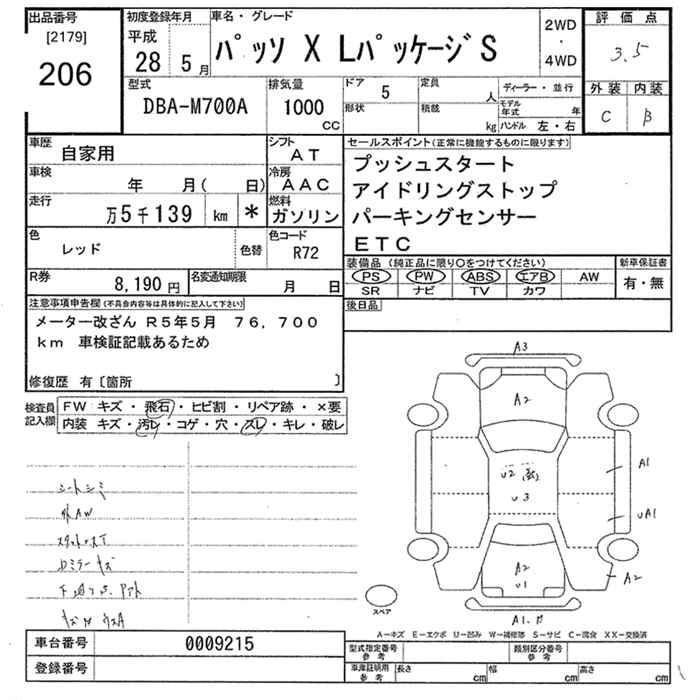 出品番号
[2179]
206
初度登録年月
平成
28 5月
車名・グレード
パッソ X LパッケージS
2WD
・
4WD
評価点
3.5
外装 内装
C B
型式
DBA-M700A
排気量
1000
cc
ドア 5
形状
定員 人
積載 kg
ディーラー・並行
モデル年式 年
ハンドル 左・右
車歴 自家用
シフト AT
車検 年 月( 日)
冷房 AAC
走行 万5千139 km *
燃料 ガソリン
色 レッド 色替
色コード R72
R券 8,190円
名変通知期限 月 日
セールスポイント(正常に機能するものに限ります)
プッシュスタート
アイドリングストップ
パーキングセンサー
ETC
装備品 (純正品に限り○をつけてください)
PS PW ABS エアB AW
SR ナビ TV カワ
新車保証書
有・無
後日品
注意事項申告欄(不具合内容等は具体的に記入して下さい)
メーター改ざん R5年5月 76,700
km 車検証記載あるため
修復歴 有〔箇所 〕
検査員記入欄
FW キズ・飛石・ヒビ割・リペア跡・×要
内装 キズ・汚レ・コゲ・穴・スレ・キレ・破レ
シートシミ
A3
A2
U2
U3
A1
UA1
A2
A2
U1
A1
スペア
A-キズ E-エクボ U-凹み W-補修跡 S-サビ C-腐食 XX-交換済
車台番号 0009215
登録番号
型式指定番号 参考
類別区分番号 参考
車庫証明用 参考
長さ cm 幅 cm 高さ cm